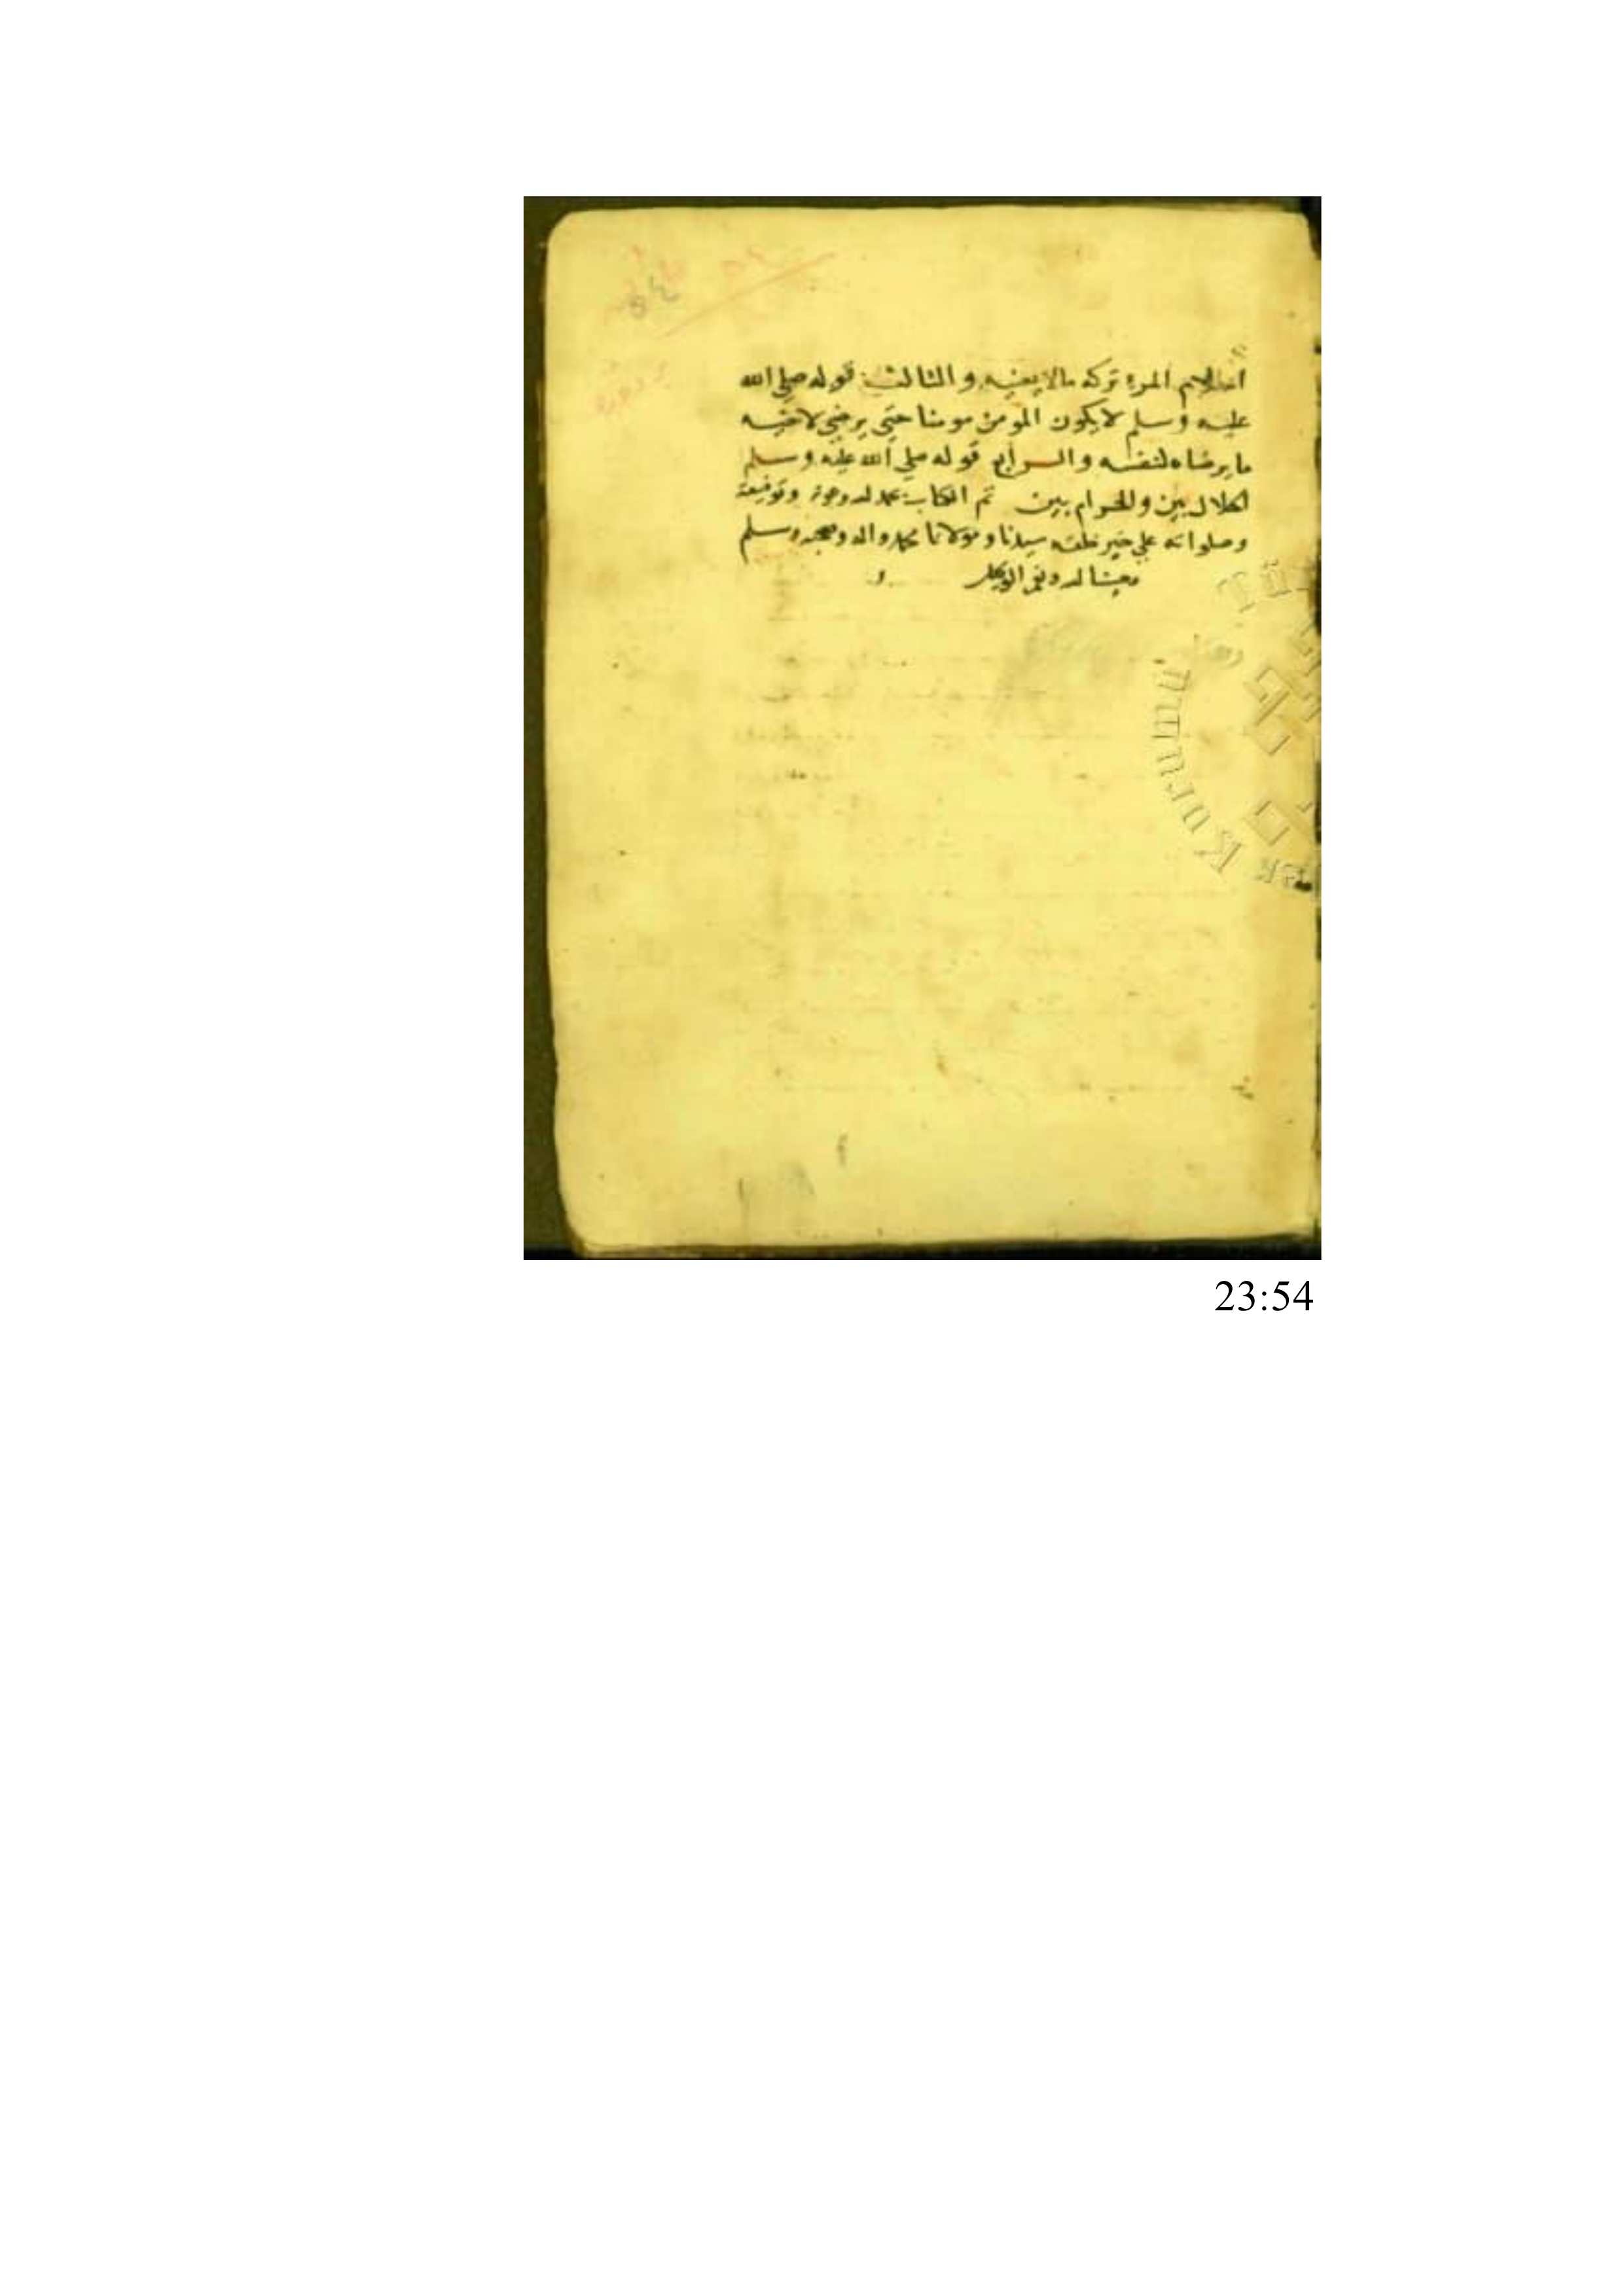 اسلام المرء تركه مالا يعنيه و الثالث قوله صلى الله
عليه وسلم لا يكون المومن مومنا حتى يرضى لاخيه
ما يرضاه لنفسه والرابع قوله صلى الله عليه وسلم
الحلال بين والحرام بين تم الكتاب بحمد الله وعونه وتوفيقه
وصلواته على خير خلقه سيدنا ومولانا محمد واله وصحبه وسلم
حسبنا الله ونعم الوكيل
٥٤
23:54